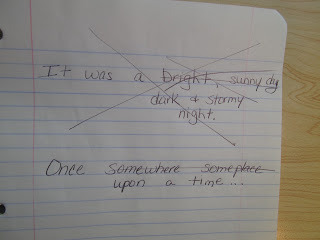 It was a bright, sunny dy
dark & stormy
night.
Once somewhere someplace
upon a time...